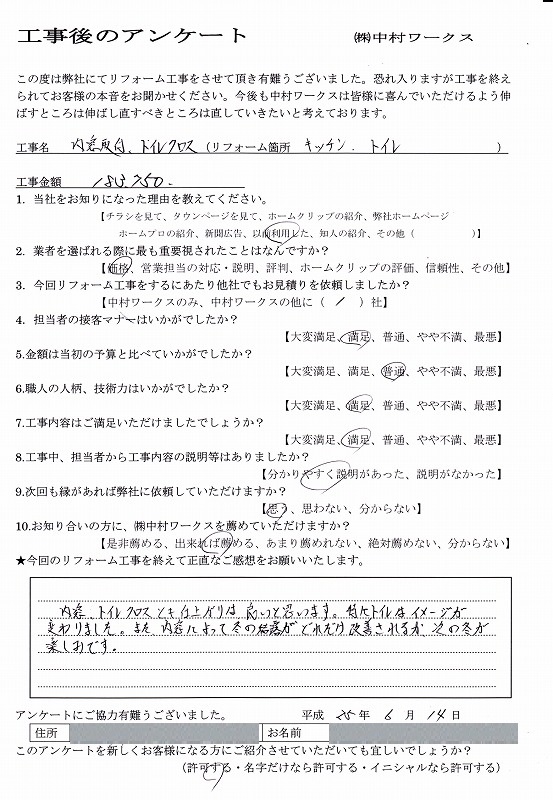 工事後のアンケート ㈱中村ワークス
この度は弊社にてリフォーム工事をさせて頂き有難うございました。恐れ入りますが工事を終え
られてお客様の本音をお聞かせください。今後も中村ワークスは皆様に喜んでいただけるよう伸
ばすところは伸ばし直すべきところは直していきたいと考えております。
工事名 内窓取付、トイレクロス (リフォーム箇所 キッチン. トイレ )
工事金額 183,750.
1. 当社をお知りになった理由を教えてください。
【チラシを見て、タウンページを見て、ホームクリップの紹介、弊社ホームページ
ホームプロの紹介、新聞広告、以前利用した、知人の紹介、その他( )】
2. 業者を選ばれる際に最も重要視されたことはなんですか?
【価格、営業担当の対応・説明、評判、ホームクリップの評価、信頼性、その他】
3. 今回リフォーム工事をするにあたり他社でもお見積りを依頼しましたか?
【中村ワークスのみ、中村ワークスの他に( / )社】
4. 担当者の接客マナーはいかがでしたか?
【大変満足、満足、普通、やや不満、最悪】
5.金額は当初の予算と比べていかがでしたか?
【大変満足、満足、普通、やや不満、最悪】
6.職人の人柄、技術力はいかがでしたか?
【大変満足、満足、普通、やや不満、最悪】
7.工事内容はご満足いただけましたでしょうか?
【大変満足、満足、普通、やや不満、最悪】
8.工事中、担当者から工事内容の説明等はありましたか?
【分かりやすく説明があった、説明がなかった】
9.次回も縁があれば弊社に依頼していただけますか?
【思う、思わない、分からない】
10.お知り合いの方に、㈱中村ワークスを薦めていただけますか?
【是非薦める、出来れば薦める、あまり薦めれない、絶対薦めない、分からない】
★今回のリフォーム工事を終えて正直なご感想をお願いいたします。
内窓、トイレクロスとも仕上がりは良いと思います。特にトイレはイメージが
変わりました。また 内窓によって冬の結露が どれだけ改善されるか 次の冬が
楽しみです。
アンケートにご協力有難うございました。 平成 25 年 6 月 14 日
住所 お名前
このアンケートを新しくお客様になる方にご紹介させていただいても宜しいでしょうか?
(許可する・名字だけなら許可する・イニシャルなら許可する)